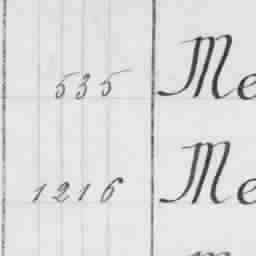 535 Me
1216 Me